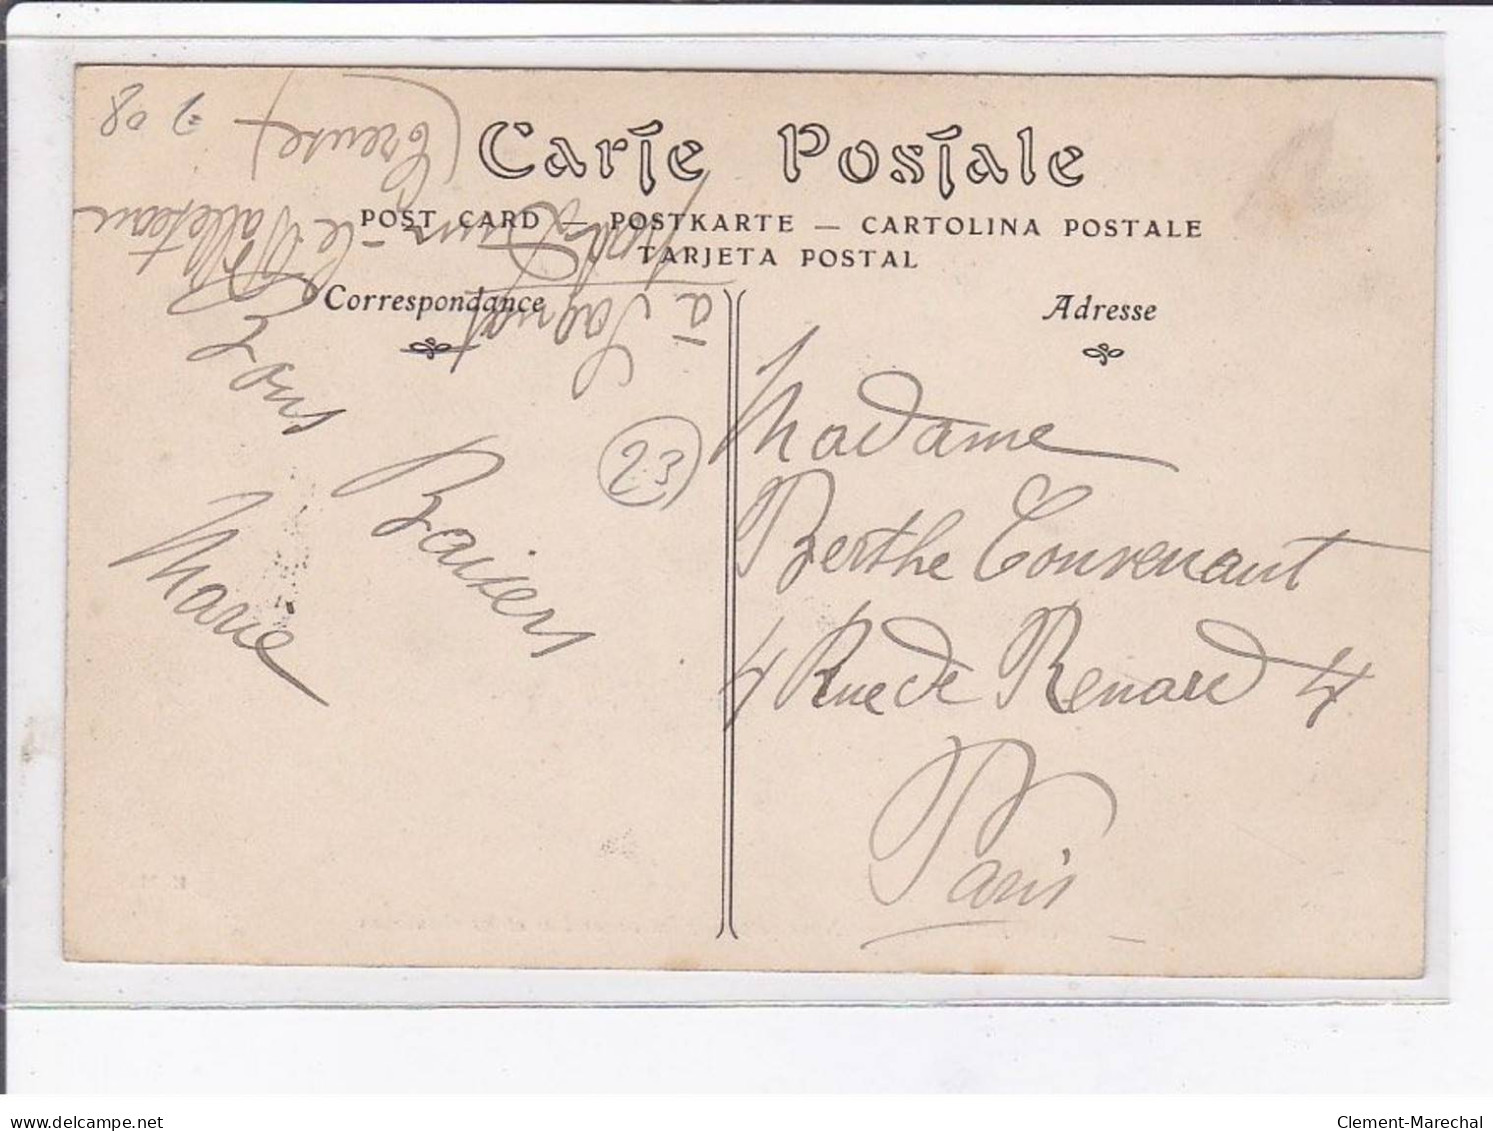 Carte Postale
POST CARD — POSTKARTE — CARTOLINA POSTALE
TARJETA POSTAL
Correspondance
Adresse
à Sagnat
Dun-le-Palleteau
(Creuse)
08
23
Bons
Baisers
Marie
Madame
Berthe Convenant
4 Rue de Renard 4
Paris
delcampe.net
Clement-Marechal